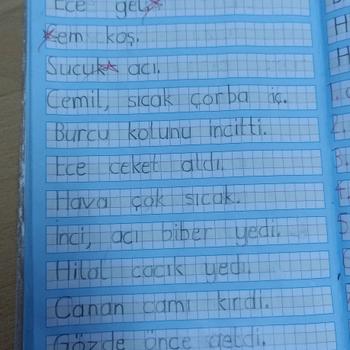 Ece gel.
Cem koş.
Sucuk acı.
Cemil, sıcak çorba iç.
Burcu kolunu incitti.
Ece ceket aldı.
Hava çok sıcak.
İnci, acı biber yedi.
Hilal cacık yedi.
Canan camı kırdı.
Gözde önce geldi.